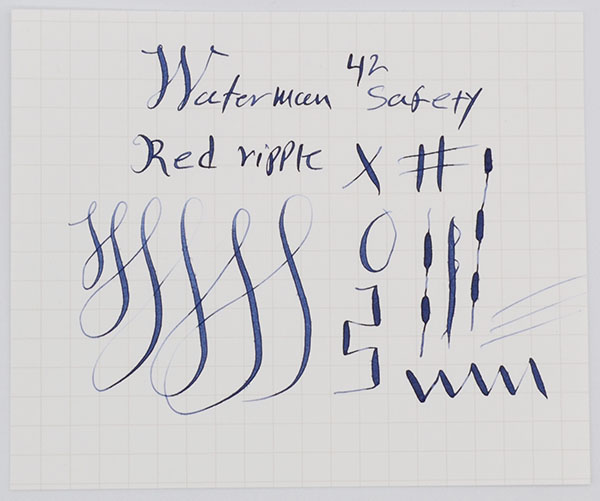 Waterman 42 Safety
Red ripple X #